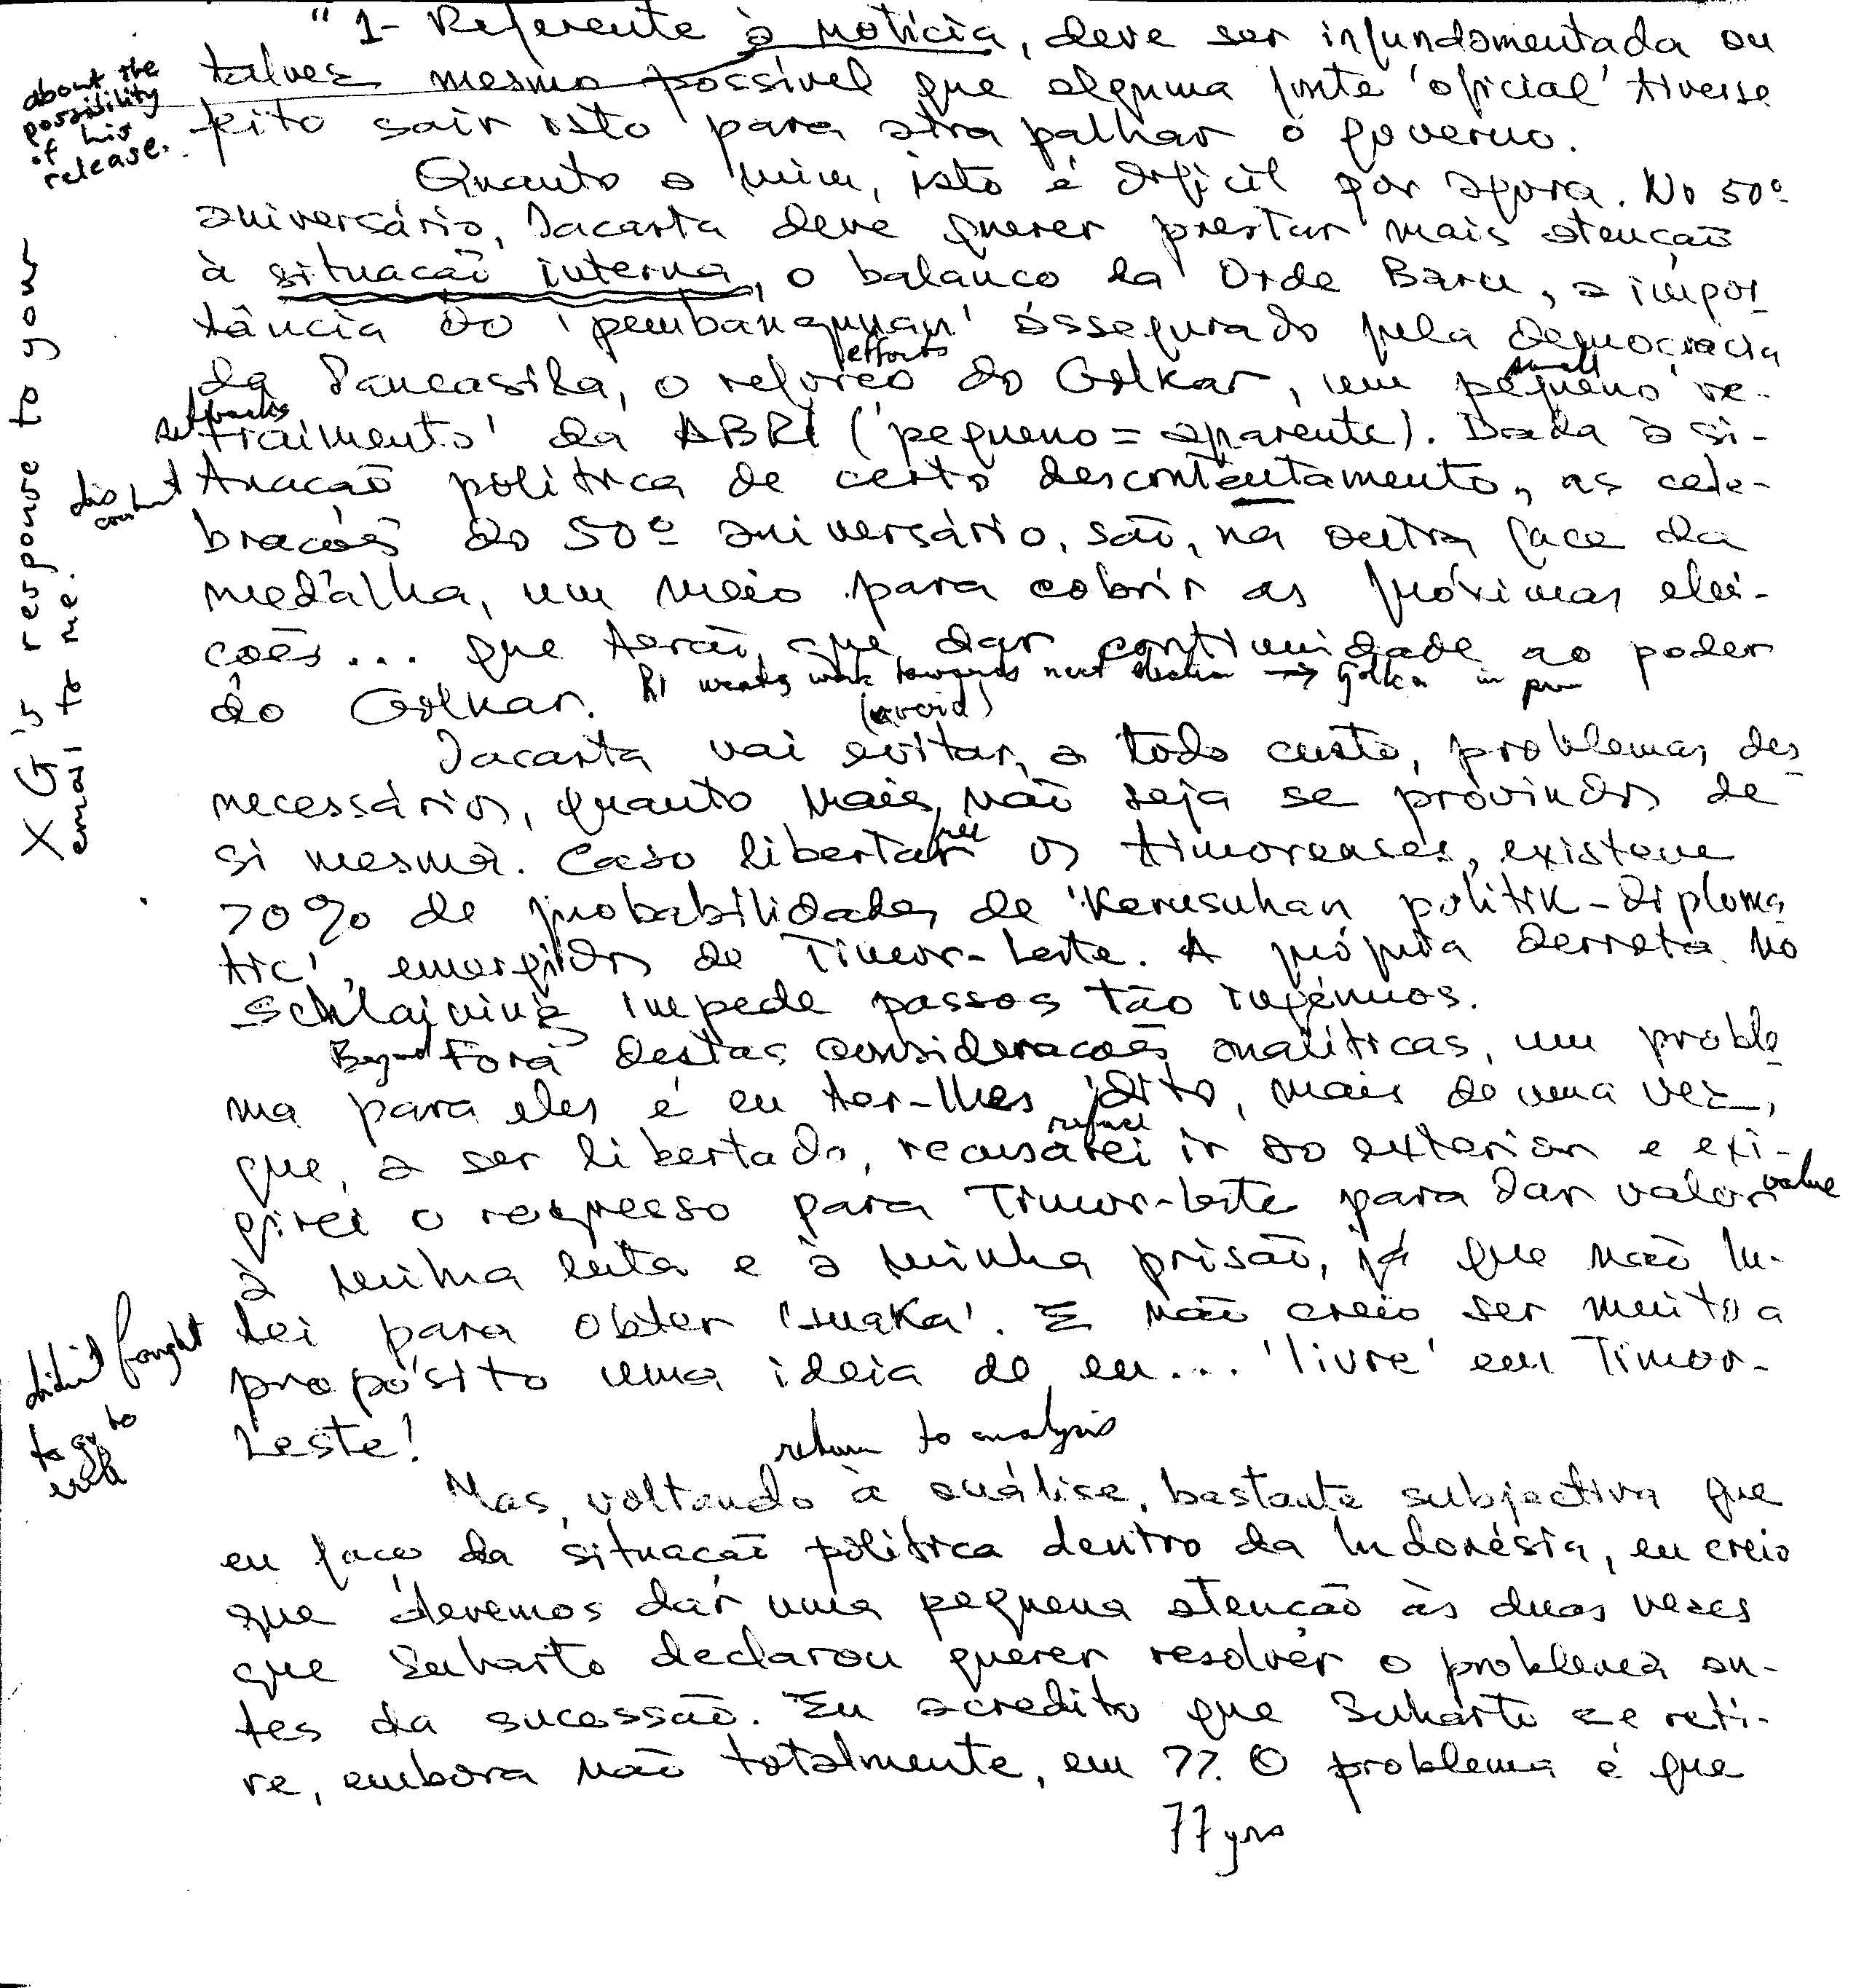 "1- Referente à notícia, deve ser infundamentada ou
about the
possibility
of his
release.
talvez mesmo possível que alguma fonte 'oficial' tivesse
feito sair isto para atrapalhar o governo.
Quanto a mim, isto é difícil por agora. No 50º
aniversário, Jacarta deve querer prestar mais atenção
à situação interna, o balanço da Orde Baru, a impor-
tância do 'pembangunan' assegurado pela democracia
efforts
small
da Pancasila, o reforço do Golkar, um pequeno 're-
setbacks
traimento' da ABRI ('pequeno = aparente). Dada a si-
discontent
tuação política de certo descontentamento, as cele-
brações do 50º aniversário, são, na outra face da
medalha, um meio para cobrir as próximas elei-
ções... que terão que dar continuidade ao poder
RI wants work towards next election → Golkar in
do Golkar.
(avoid)
Jacarta vai evitar, a todo custo, problemas des-
necessários, quanto mais não seja se provindos de
free
si mesma. Caso libertar os timorenses, existem
70% de probabilidades de 'kerusuhan politik-diploma-
tic', emergidos de Timor-Leste. A própria derrota no
Schlaining impede passos tão ingénuos.
Beyond
Fora destas considerações analíticas, um proble-
ma para eles é eu ter-lhes dito, mais de uma vez,
refuse
que, a ser libertado, recusarei ir ao exterior e exi-
girei o regresso para Timor-Leste para dar valor
value
à minha luta e à minha prisão, já que não lu-
tei para obter 'suaka'. E não creio ser muito a
propósito uma ideia de eu... 'livre' em Timor-
Leste!
didn't fought
to go to
exile
return to analysis
Mas, voltando à análise, bastante subjectiva que
eu faço da situação política dentro da Indonésia, eu creio
que devemos dar uma pequena atenção às duas vezes
que Suharto declarou querer resolver o problema an-
tes da sucessão. Eu acredito que Suharto se reti-
re, embora não totalmente, em 77. O problema é que
77 yrs
X G's response to your
email to me.